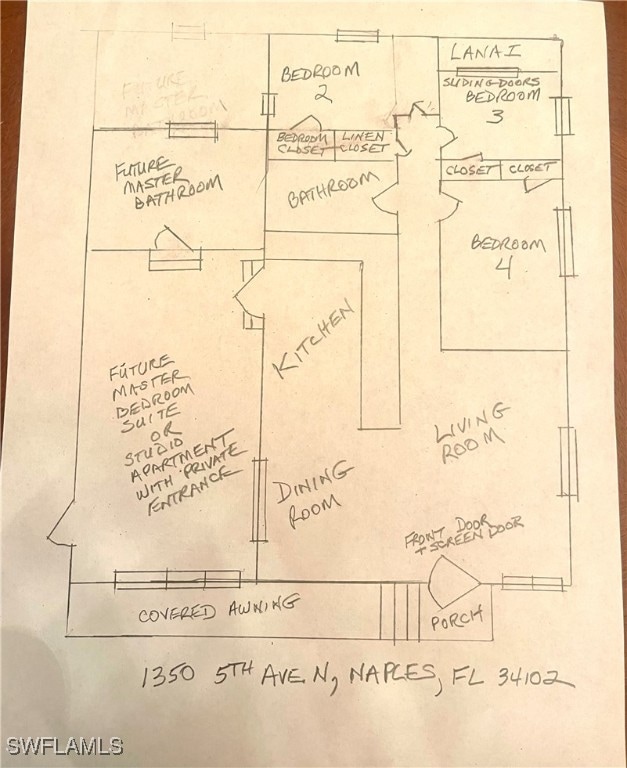 LANAI
SLIDING DOORS
BEDROOM
3
BEDROOM
2
FUTURE
MASTER
BATHROOM
BEDROOM
CLOSET
LINEN
CLOSET
CLOSET
CLOSET
FUTURE
MASTER
BATHROOM
BATHROOM
BEDROOM
4
KITCHEN
FUTURE
MASTER
BEDROOM
SUITE
OR
STUDIO
APARTMENT
WITH PRIVATE
ENTRANCE
LIVING
ROOM
DINING
ROOM
FRONT DOOR
+ SCREEN DOOR
COVERED AWNING
PORCH
1350 5TH AVE. N, NAPLES, FL 34102
SWFLAMLS